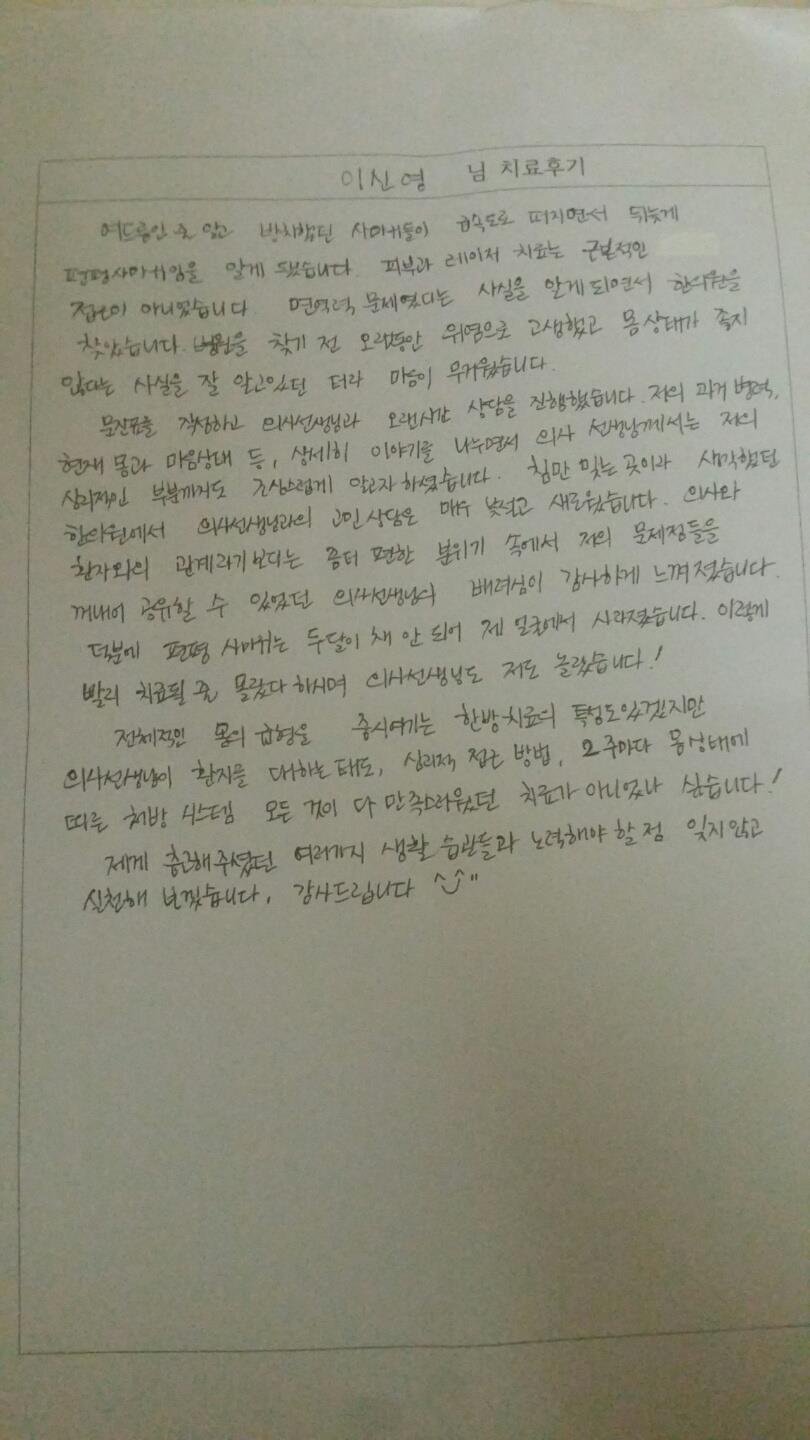 이신영 님 치료후기
여드름인 줄 알고 방치했던 사마귀들이 급속도로 퍼지면서 뒤늦게
편평사마귀임을 알게 됐습니다. 피부과 레이저 치료는 근본적인
접근이 아니었습니다. 면역력 문제였다는 사실을 알게되면서 한의원을
찾았습니다. 병원을 찾기 전 오랫동안 위염으로 고생했고 몸상태가 좋지
않다는 사실을 잘 알고있던 터라 마음이 무거웠습니다.
문진표를 작성하고 의사선생님과 오랜시간 상담을 진행했습니다. 저의 과거 병력,
현재 몸과 마음상태 등, 상세히 이야기를 나누면서 의사 선생님께서는 저의
심리적인 부분까지도 조심스럽게 알고자 하셨습니다. 침만 맞는 곳이라 생각했던
한의원에서 의사선생님과의 고민상담은 매우 낯설고 새로웠습니다. 의사와
환자와의 관계라기보다는 좀더 편한 분위기 속에서 저의 문제점들을
꺼내어 공유할 수 있었던 의사선생님의 배려심이 감사하게 느껴졌습니다.
덕분에 편평 사마귀는 두달이 채 안 되어 제 얼굴에서 사라졌습니다. 이렇게
빨리 치료될 줄 몰랐다 하시며 의사선생님도 저도 놀랐습니다!
전체적인 몸의 균형을 중시여기는 한방치료의 특성도있겠지만
의사선생님이 환자를 대하는 태도, 심리적 접근 방법, 2주마다 몸상태에
따른 처방 시스템 모든 것이 다 만족스러웠던 치료가 아니었나 싶습니다!
제게 충고해주셨던 여러가지 생활 습관들과 노력해야 할 점 잊지않고
실천해 보겠습니다. 감사드립니다 ^^